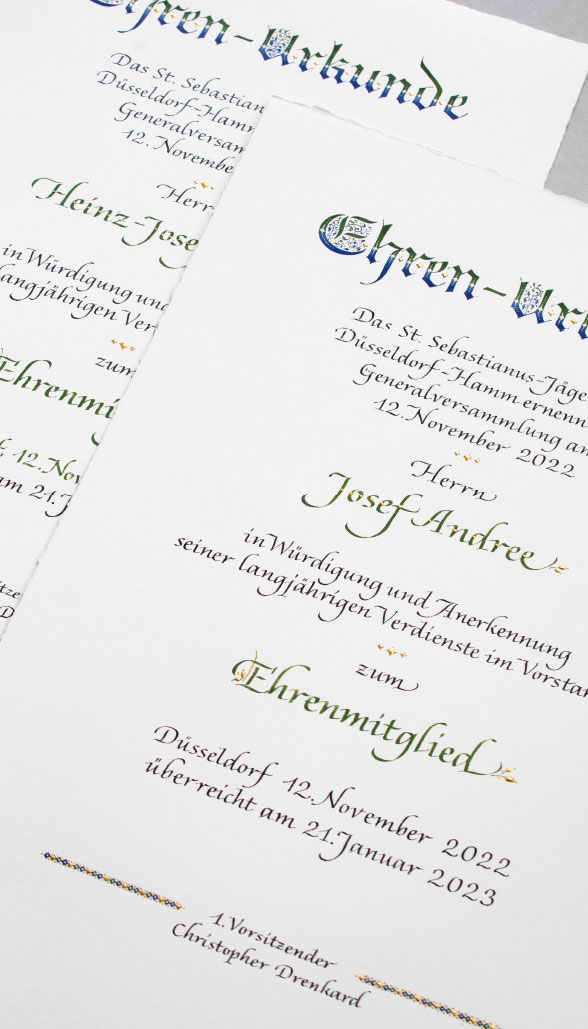 Ehren-Urkunde
Das St. Sebastian
Düsseldorf-Hamm
Generalversam
12. Novembe
Herr
Heinz-Jose
in Würdigung und
langjährigen Ver
zum
Ehrenmi
12. Nov
am 21. J
Ehren-Urk
Das St. Sebastianus-Jäge
Düsseldorf-Hamm ernenn
Generalversammlung am
12. November 2022
Herrn
Josef Andree
in Würdigung und Anerkennung
seiner langjährigen Verdienste im Vorstan
zum
Ehrenmitglied
Düsseldorf 12. November 2022
überreicht am 21. Januar 2023
1. Vorsitzender
Christopher Drenkard